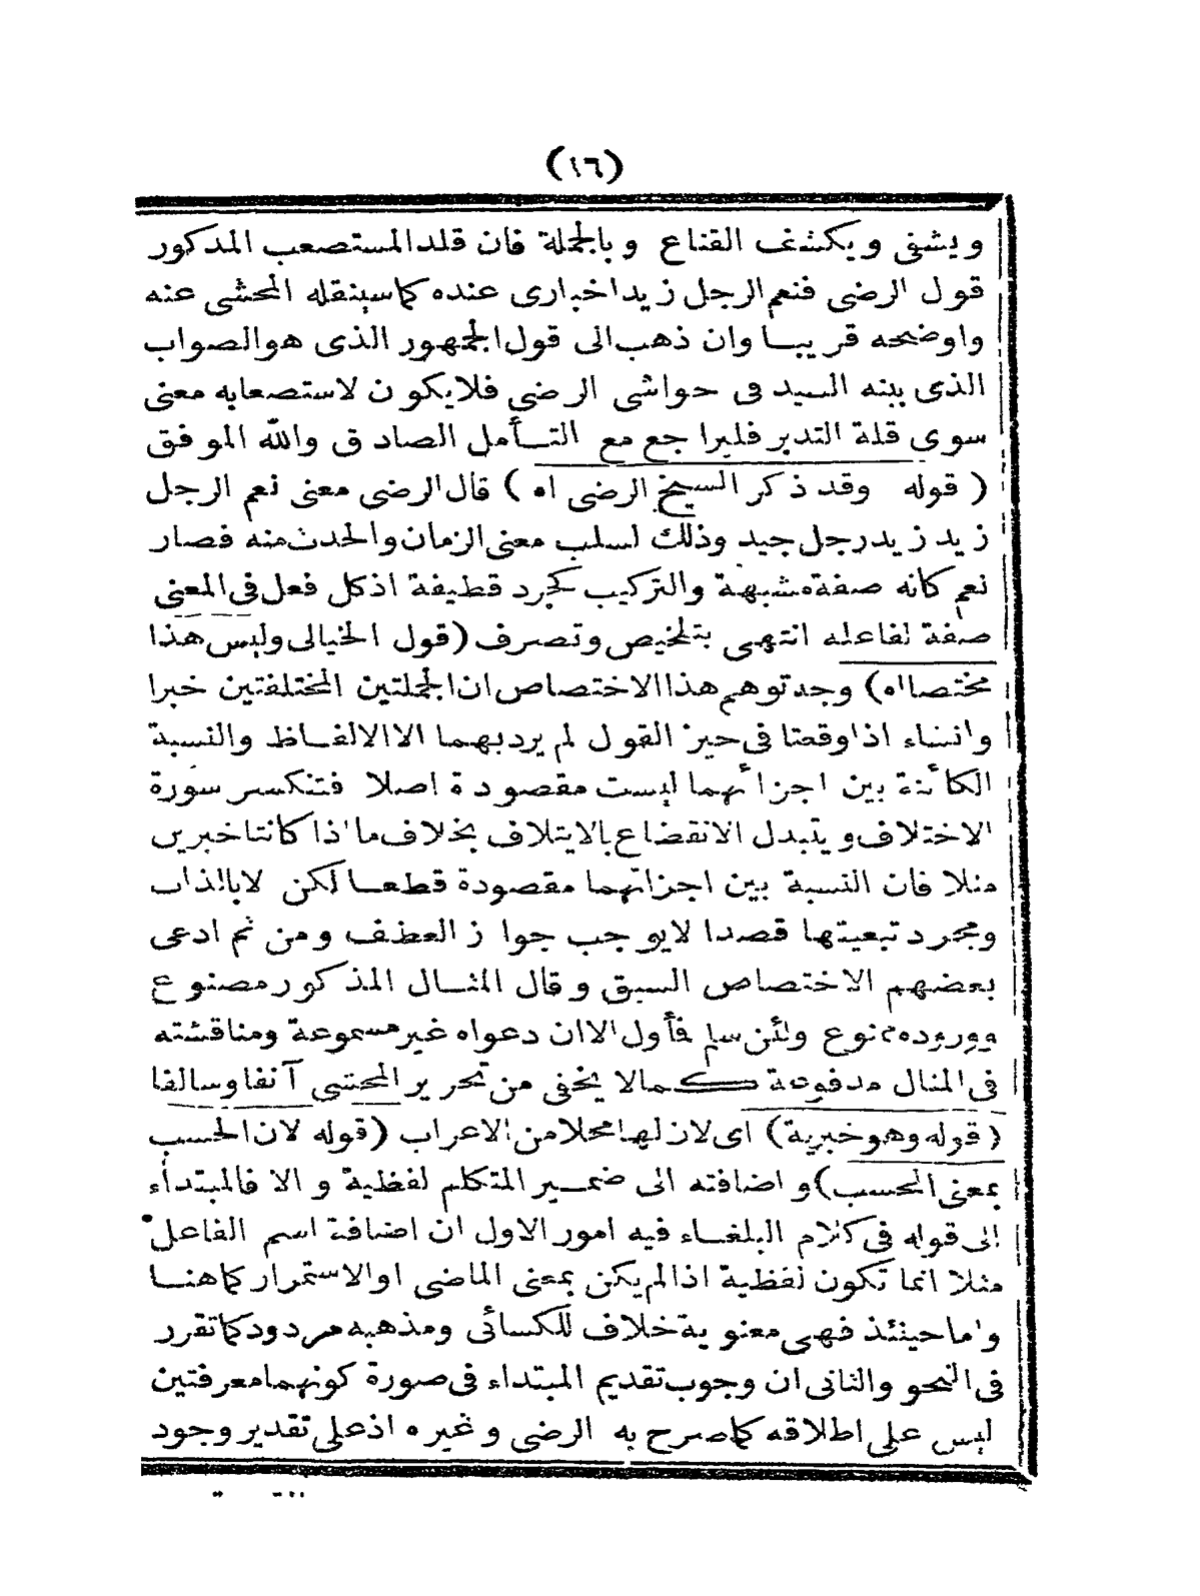 (١٦)
ويشفى ويكشف القناع وبالجملة فان قلد المستصعب المذكور
قول الرضى فنعم الرجل زيد اخبارى عنده كما سينقله المحشى عنه
واوضحه قريبا وان ذهب الى قول الجمهور الذى هو الصواب
الذى بينه السيد فى حواشى الرضى فلا يكون لاستصعابه معنى
سوى قلة التدبر فليراجع مع التأمل الصادق والله الموفق
(قوله وقد ذكر الشيخ الرضى اه) قال الرضى معنى نعم الرجل
زيد زيد رجل جيد وذلك لسلب معنى الزمان والحدث منه فصار
نعم كأنه صفة مشبهة والتركيب كجرد قطيفة اذ كل فعل فى المعنى
صفة لفاعله انتهى بتلخيص وتصرف (قول الخيالى وليس هذا
مختصا اه) وجد توهم هذا الاختصاص ان الجملتين المختلفتين خبرا
وانشاء اذا وقعتا فى حيز القول لم يرد بهما الا الالفاظ والنسبة
الكائنة بين اجزائهما ليست مقصودة اصلا فتنكسر سورة
الاختلاف ويتبدل الانقضاع بالايتلاف بخلاف ما اذا كانتا خبرين
مثلا فان النسبة بين اجزائهما مقصودة قطعا لكن لا بالذات
ومجرد تبعيتها قصدا لا يوجب جواز العطف ومن ثم ادعى
بعضهم الاختصاص السبق وقال المثال المذكور مصنوع
ووروده ممنوع ولئن سلم فأول الا ان دعواه غير مسموعة ومناقشته
فى المثال مدفوعة كما لا يخفى من تحرير المحشى آنفا وسالفا
(قوله وهو خبرية) اى لان لها محلا من الاعراب (قوله لان الحسب
بمعنى المحسب) و اضافته الى ضمير المتكلم لفظية و الا فالمبتداء
الى قوله فى كلام البلغاء فيه امور الاول ان اضافة اسم الفاعل
مثلا انما تكون لفظية اذا لم يكن بمعنى الماضى او الاستمرار كما هنا
واما حينئذ فهى معنوية خلاف للكسائى ومذهبه مردود كما تقرر
فى النحو والثانى ان وجوب تقديم المبتداء فى صورة كونهما معرفتين
ليس على اطلاقه كما صرح به الرضى وغيره اذ على تقدير وجود